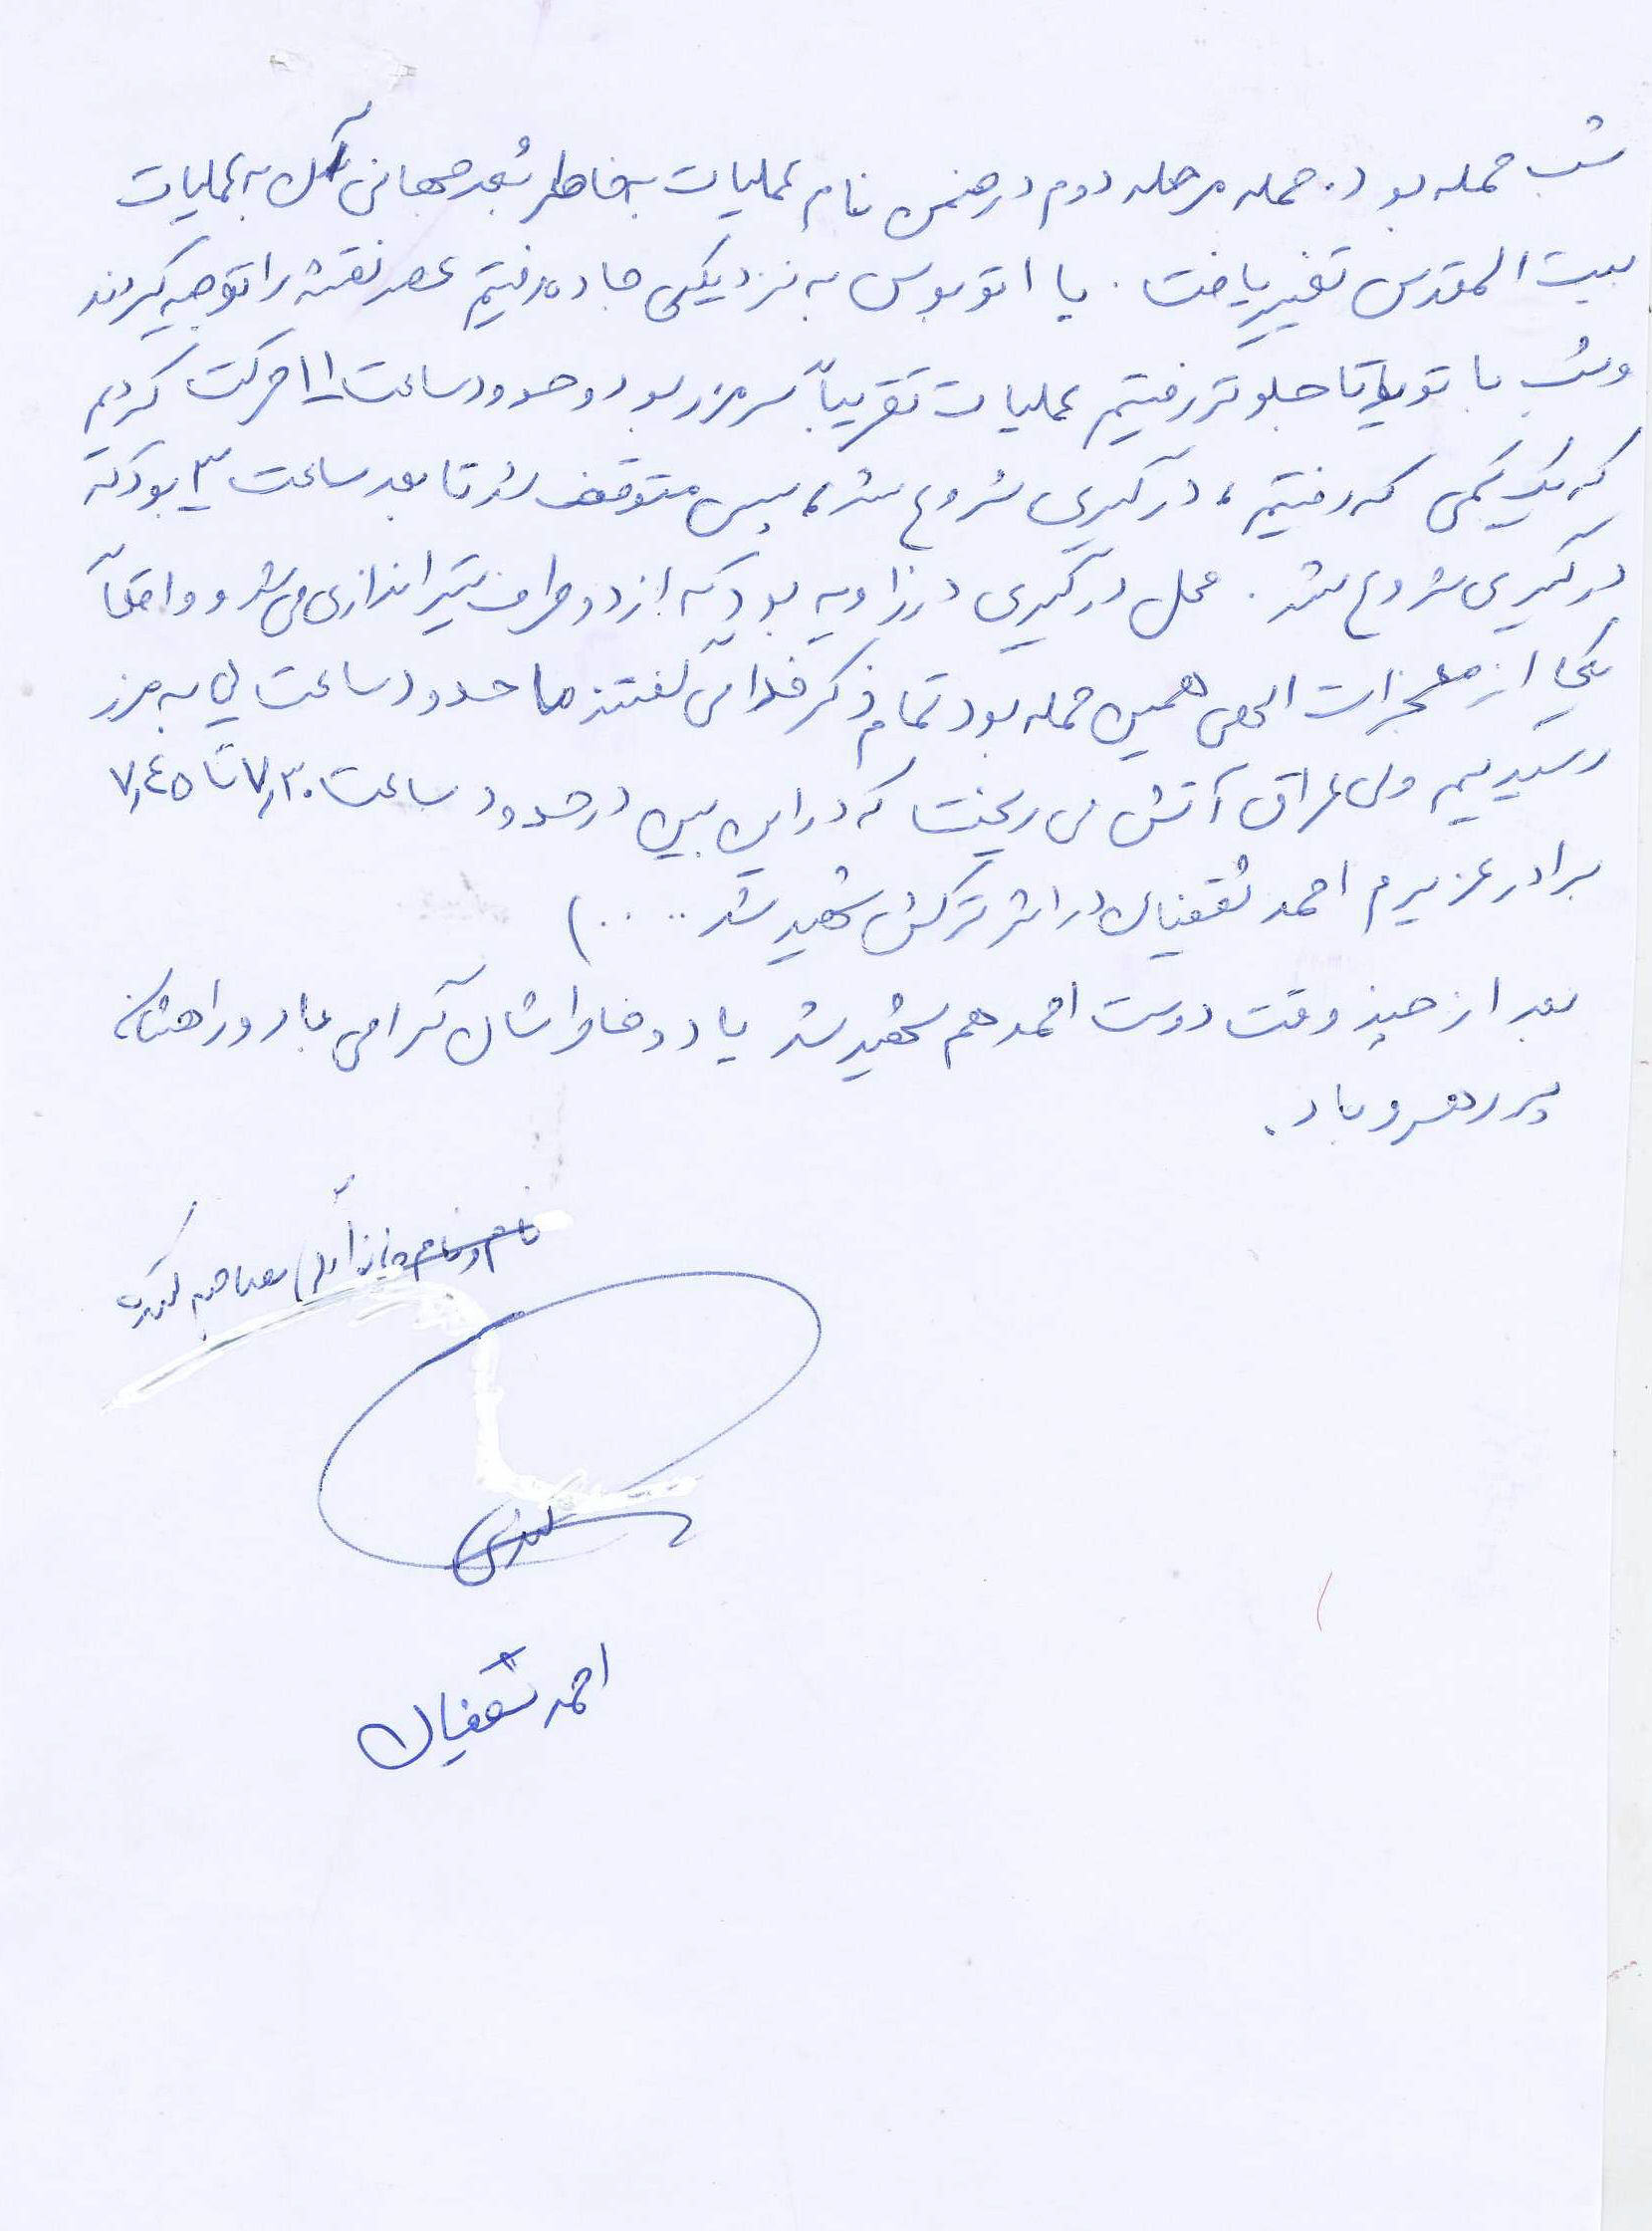 شب حمله بود. حمله مرحله دوم در ضمن نام عملیات به خاطر بُعد جهانی آن به عملیات
بیت المقدس تغییر یافت. با اتوبوس به نزدیکی جاده رفتیم عصر نقشه را توجیه کردند
و شب با تویوتا جلوتر رفتیم عملیات تقریباً سر مرز بود و حدود ساعت ۱۱ حرکت کردیم
که یک کمی که رفتیم، درگیری شروع شد، سپس متوقف شد تا بعد ساعت ۳ بود که
درگیری شروع شد. محل درگیری در زاویه بود که از دو طرف تیراندازی می شد و واقعاً
یکی از معجزات الهی همین حمله بود تمام ذکر خدا می گفتند ما حدود ساعت به مرز
رسیدیم ولی عراق آتش می ریخت که در این بین در حدود ساعت ۷٫۳۰ تا ۷٫۴۵
برادر عزیزم احمد ثقفیان در اثر ترکش شهید شد ....)
بعد از چند وقت دوست احمد هم شهید شد یاد و خاطراشان گرامی باد و راهشان
پر رهرو باد.
نام و نام مصاحبه کننده
احمد ثقفیان